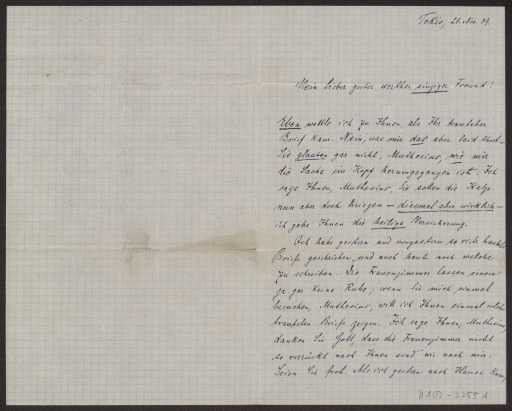 Tokio, 21. Nov. 89.
Mein lieber guter werther einziger Freund!
Eben wollte ich zu Ihnen, als Ihr trauteher
Brief kam. Nein, was mir das aber leid thut.
Sie glauben gar nicht, Muthesius, wie mir
die Sache im Kopf herumgegangen ist. Ich
sage Ihnen, Muthesius, Sie sollen die Katze
nun aber doch kriegen – diesmal aber wirklich –
ich gebe Ihnen die heilige Versicherung.
Ich habe gestern und vorgestern so viele
Briefe geschrieben, und auch heute noch welche
zu schreiben. Die Frauenzimmer lassen einem
ja gar keine Ruhe; wenn Sie mich einmal
besuchen, Muthesius, will ich Ihnen einmal solch
Briefe zeigen. Ich sage Ihnen, Muthesius,
danken Sie Gott, dass die Frauenzimmer nicht
so verrückt nach Ihnen sind wie nach mir.
Seien Sie froh. Als ich gestern nach Hause kam,